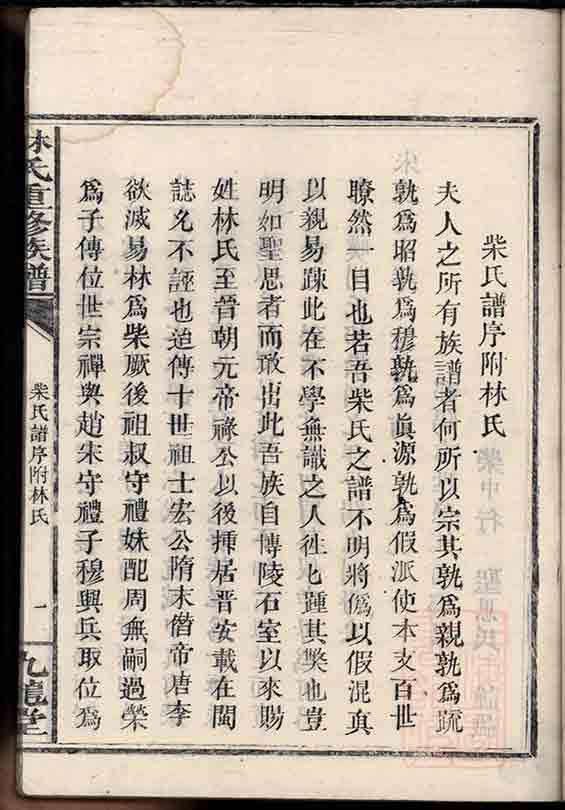 柴氏譜序附林氏
夫人之所有族譜者何所以宗其孰為親孰為疏
孰為昭孰為穆孰為眞源孰為假派使本支百世
瞭然一目也若吾柴氏之譜不明將偽以假混真
以親易疎此在不學無識之人徃匕踵其獘也豈
明如聖思者而敢出此吾族自博陵石室以來賜
姓林氏至晉朝元帝祿公以後揷居晋安載在閩
誌名不誣也迨傳十世祖士宏公隋末僭帝唐李
欲滅易林為柴厥後祖叔守禮妹配周無嗣過榮
為子傳位世宗禪與趙宋守禮子穆興兵取位為
林氏重修族譜
柴氏譜序附林氏
一
九龍堂